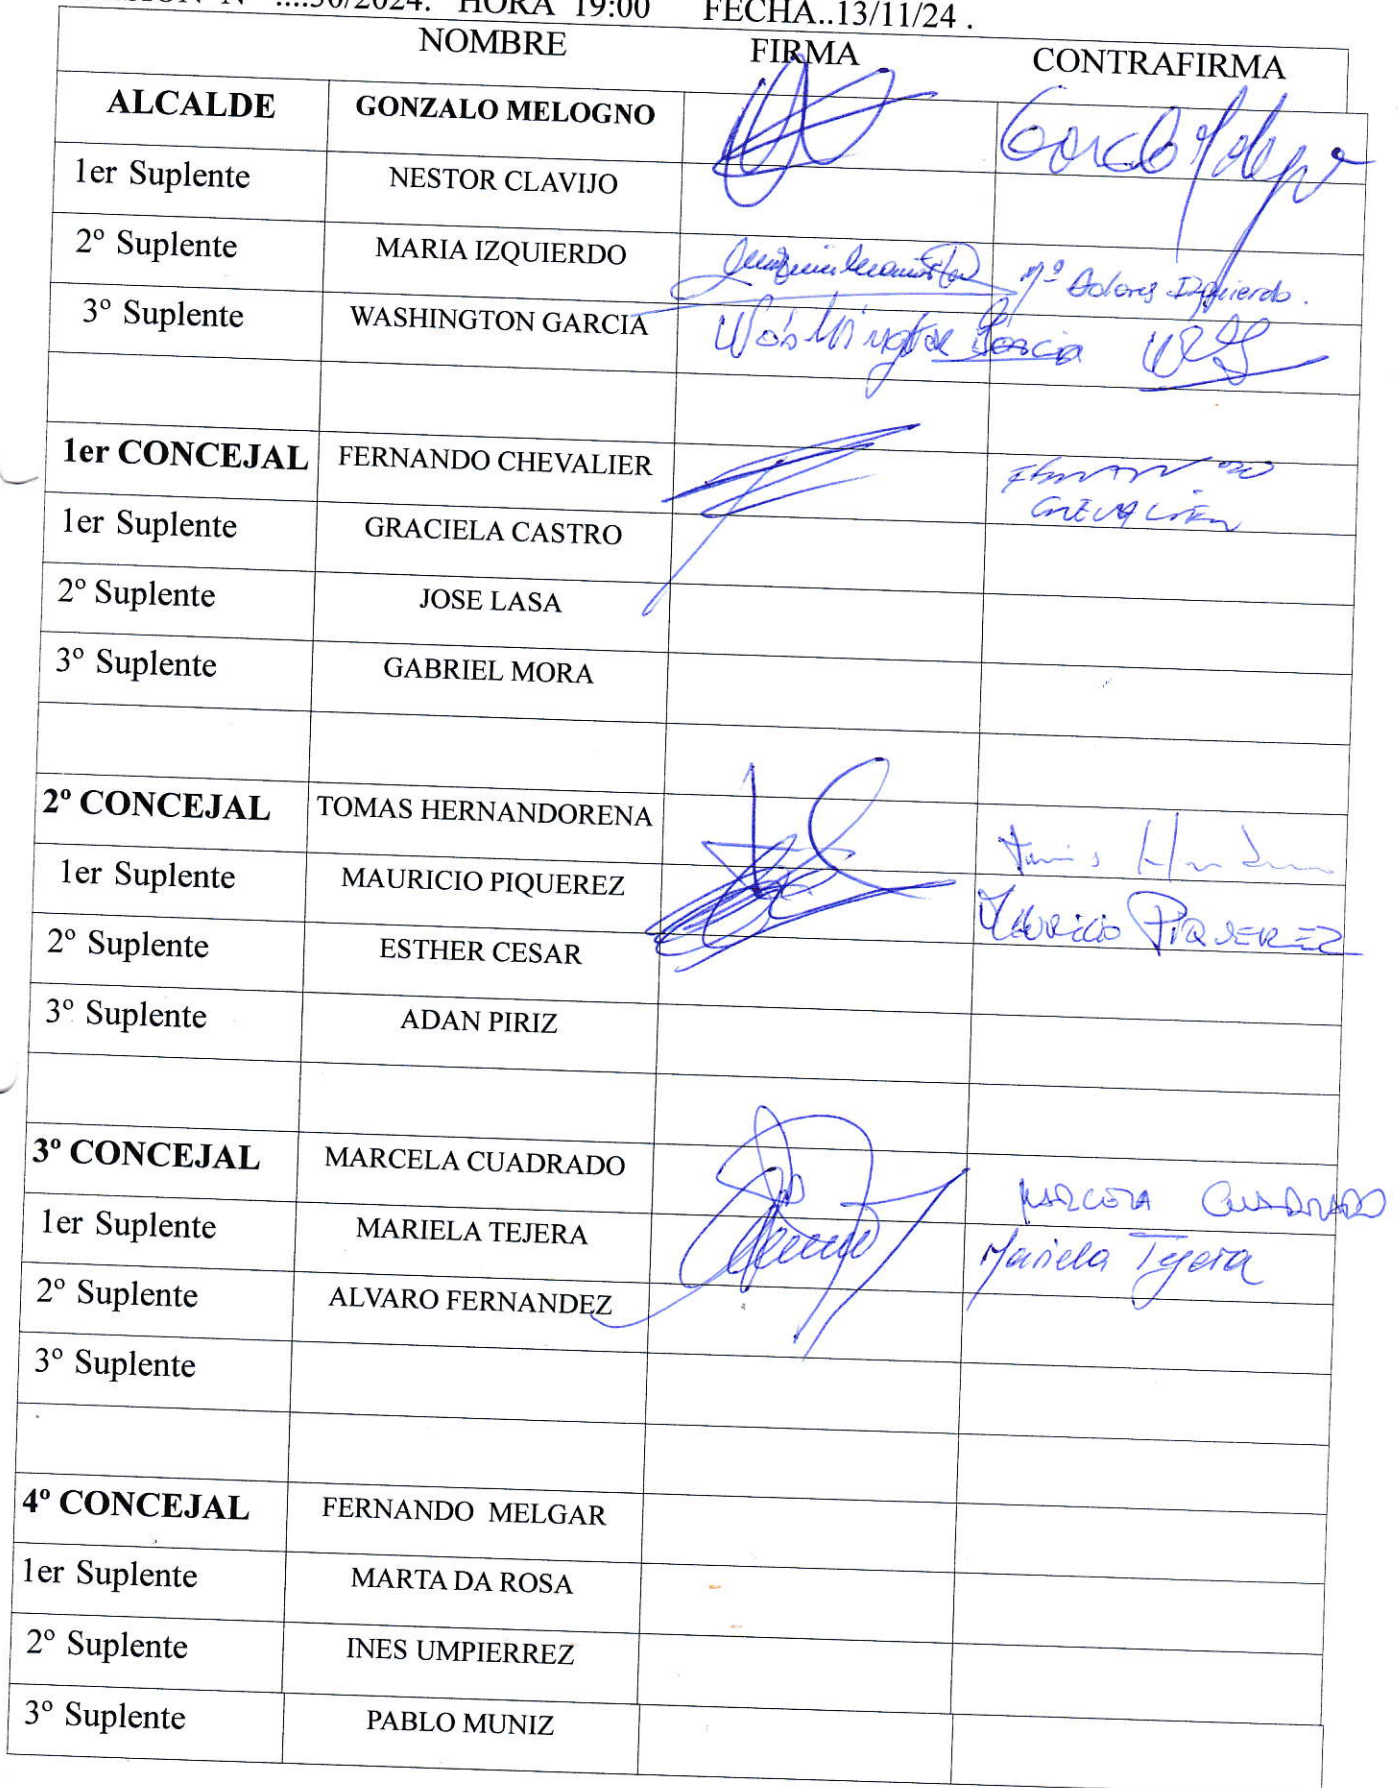 HORA 19:00 FECHA..13/11/24 .
NOMBRE FIRMA CONTRAFIRMA
ALCALDE GONZALO MELOGNO
1er Suplente NESTOR CLAVIJO
2º Suplente MARIA IZQUIERDO Mª Dolores Izquierdo.
3º Suplente WASHINGTON GARCIA Washington Garcia
1er CONCEJAL FERNANDO CHEVALIER FERNANDO
CHEVALIER
1er Suplente GRACIELA CASTRO
2º Suplente JOSE LASA
3º Suplente GABRIEL MORA
2º CONCEJAL TOMAS HERNANDORENA
1er Suplente MAURICIO PIQUEREZ MAURICIO PIQUEREZ
2º Suplente ESTHER CESAR
3º Suplente ADAN PIRIZ
3º CONCEJAL MARCELA CUADRADO MARCELA CUADRADO
1er Suplente MARIELA TEJERA Mariela Tejera
2º Suplente ALVARO FERNANDEZ
3º Suplente
4º CONCEJAL FERNANDO MELGAR
1er Suplente MARTA DA ROSA
2º Suplente INES UMPIERREZ
3º Suplente PABLO MUNIZ